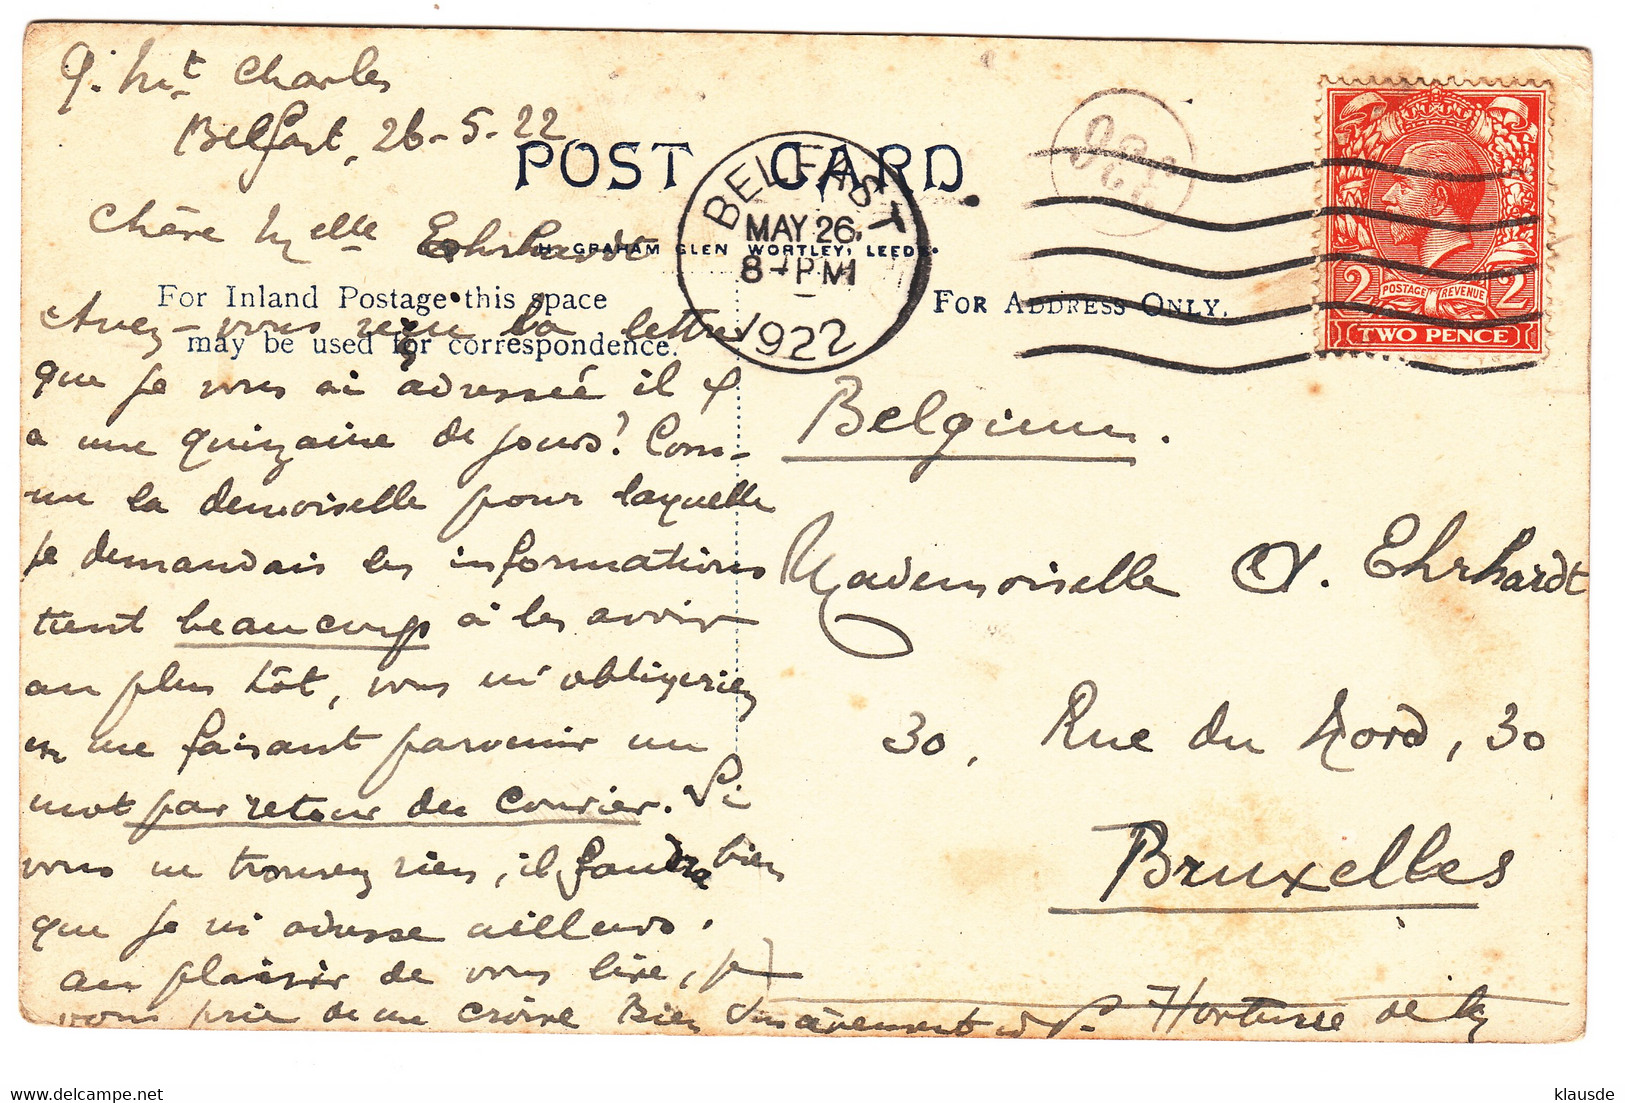 9. Mt Charles
Belfast, 26-5-22
POST CARD
BELFAST
MAY 26
8-PM
1922
Chère Melle Ehrhardt
H. GRAHAM GLEN WORTLEY, LEEDS.
For Inland Postage this space
may be used for correspondence.
FOR ADDRESS ONLY.
2 POSTAGE REVENUE 2
TWO PENCE
Avez-vous reçu la lettre
que je vous ai adressée il y
a une quinzaine de jours? Com-
me la demoiselle pour laquelle
je demandais les informations
tient beaucoup à les avoir
au plus tôt, vous m'obligeriez
en me faisant parvenir un
mot par retour du courier. Si
vous ne trouvez rien, il faudra bien
que je m'adresse ailleurs.
au plaisir de vous lire, je
vous prie de me croire Bien sincèrement
Hortense de
Belgium.
Mademoiselle A. Ehrhardt
30, Rue du Nord, 30
Bruxelles
klausde